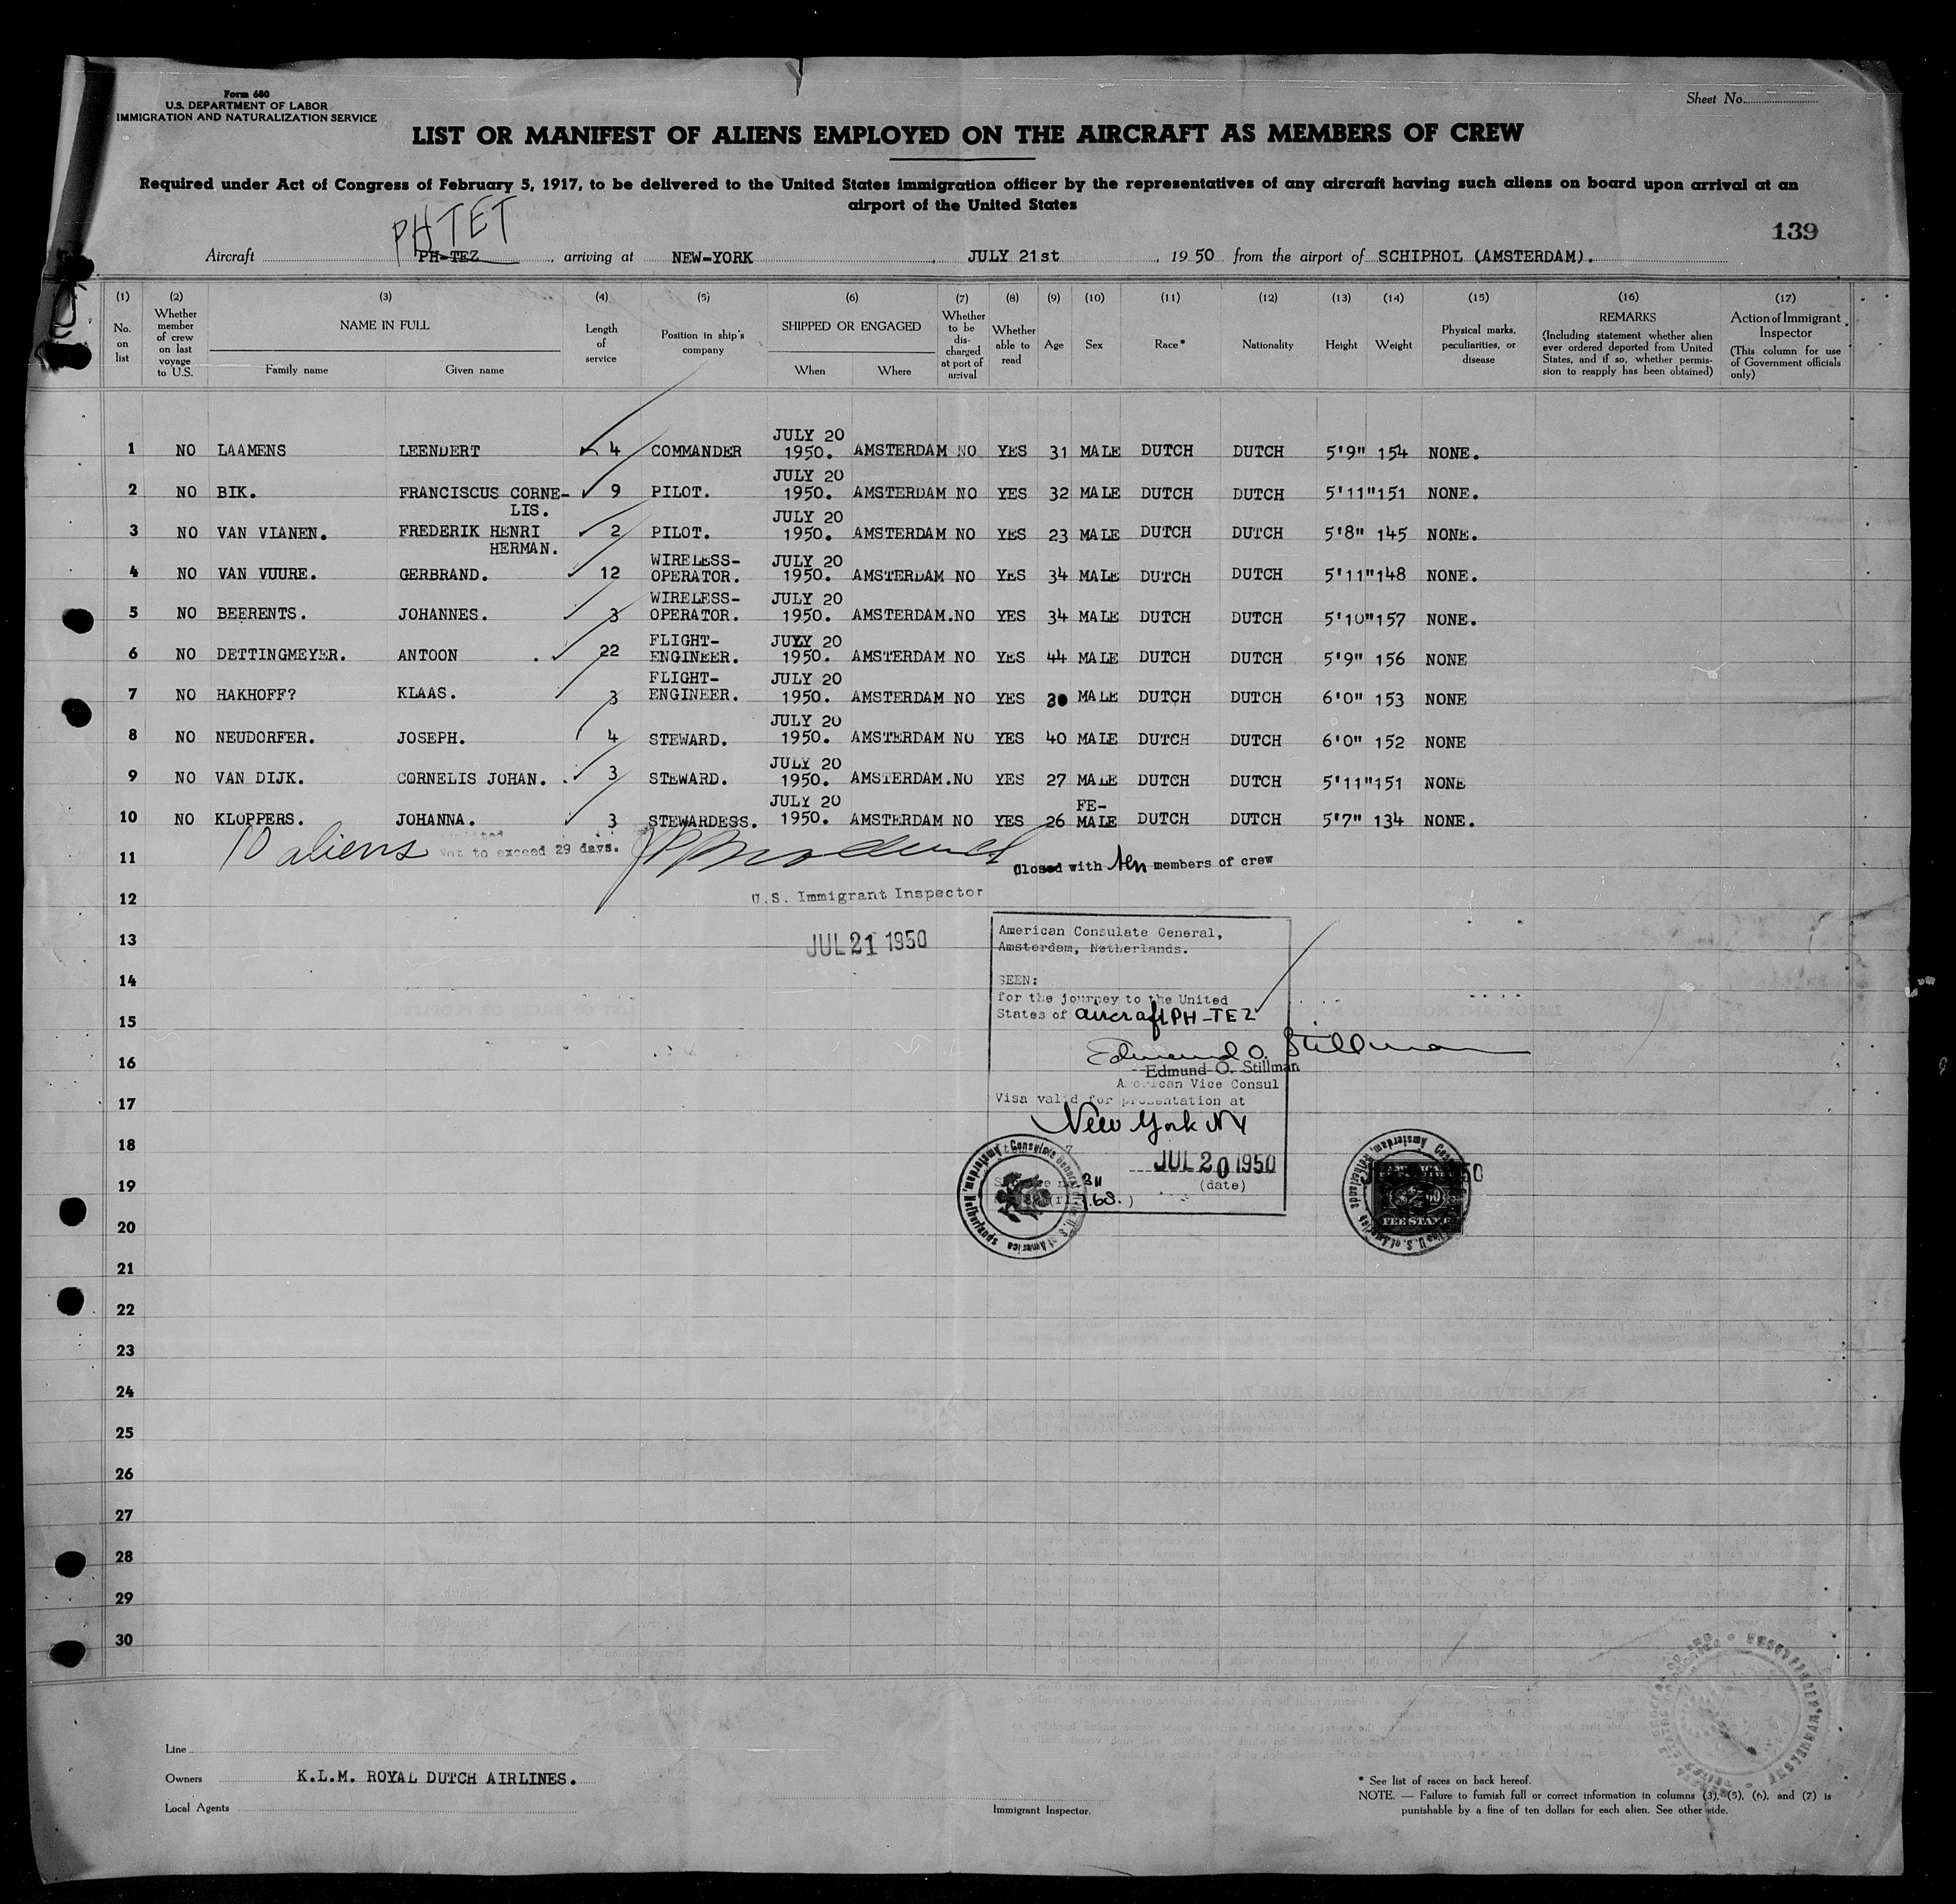 Form 680
U.S. DEPARTMENT OF LABOR
IMMIGRATION AND NATURALIZATION SERVICE
Sheet No.
LIST OR MANIFEST OF ALIENS EMPLOYED ON THE AIRCRAFT AS MEMBERS OF CREW
Required under Act of Congress of February 5, 1917, to be delivered to the United States immigration officer by the representatives of any aircraft having such aliens on board upon arrival at an
airport of the United States
139
PHTET
Aircraft PH-TEZ, arriving at NEW-YORK, JULY 21st, 1950 from the airport of SCHIPHOL (AMSTERDAM).
(1) No. on list
(2) Whether member of crew on last voyage to U.S.
(3) NAME IN FULL Family name Given name
(4) Length of service
(5) Position in ship's company
(6) SHIPPED OR ENGAGED When Where
(7) Whether to be dis-charged at port of arrival
(8) Whether able to read
(9) Age
(10) Sex
(11) Race*
(12) Nationality
(13) Height
(14) Weight
(15) Physical marks, peculiarities, or disease
(16) REMARKS (Including statement whether alien ever ordered deported from United States, and if so, whether permis-sion to reapply has been obtained)
(17) Action of Immigrant Inspector (This column for use of Government officials only)
1 NO LAAMENS LEENDERT 4 COMMANDER JULY 20 1950. AMSTERDAM NO YES 31 MALE DUTCH DUTCH 5'9" 154 NONE.
2 NO BIK. FRANCISCUS CORNE-LIS. 9 PILOT. JULY 20 1950. AMSTERDAM NO YES 32 MALE DUTCH DUTCH 5'11" 151 NONE.
3 NO VAN VIANEN. FREDERIK HENRI HERMAN. 2 PILOT. JULY 20 1950. AMSTERDAM NO YES 23 MALE DUTCH DUTCH 5'8" 145 NONE.
4 NO VAN VUURE. GERBRAND. 12 WIRELESS-OPERATOR. JULY 20 1950. AMSTERDAM NO YES 34 MALE DUTCH DUTCH 5'11" 148 NONE.
5 NO BEERENTS. JOHANNES. 3 WIRELESS-OPERATOR. JULY 20 1950. AMSTERDAM. NO YES 34 MALE DUTCH DUTCH 5'10" 157 NONE.
6 NO DETTINGMEYER. ANTOON . 22 FLIGHT-ENGINEER. JULY 20 1950. AMSTERDAM NO YES 44 MALE DUTCH DUTCH 5'9" 156 NONE
7 NO HAKHOFF? KLAAS. 3 FLIGHT-ENGINEER. JULY 20 1950. AMSTERDAM NO YES 30 MALE DUTCH DUTCH 6'0" 153 NONE
8 NO NEUDORFER. JOSEPH. 4 STEWARD. JULY 20 1950. AMSTERDAM NO YES 40 MALE DUTCH DUTCH 6'0" 152 NONE
9 NO VAN DIJK. CORNELIS JOHAN. 3 STEWARD. JULY 20 1950. AMSTERDAM. NO YES 27 MALE DUTCH DUTCH 5'11" 151 NONE
10 NO KLOPPERS. JOHANNA. 3 STEWARDESS. JULY 20 1950. AMSTERDAM NO YES 26 FE-MALE DUTCH DUTCH 5'7" 134 NONE.
10 aliens admitted
not to exceed 29 days.
Closed with ten members of crew
11
12
U.S. Immigrant Inspector
13
JUL 21 1950
American Consulate General,
Amsterdam, Netherlands.
14
SEEN:
for the journey to the United
15
States of aircraft PH-TEZ
Edmund O. Stillman
16
Edmund O. Stillman
American Vice Consul
17
Visa valid for presentation at
New York NY
18
JUL 20 1950
19
(date)
Consulate General U.S. of America Amsterdam, Netherlands
FEE STAMP
20
21
22
23
24
25
26
27
28
29
30
Line
Owners K.L.M. ROYAL DUTCH AIRLINES.
Local Agents
Immigrant Inspector.
* See list of races on back hereof.
NOTE. — Failure to furnish full or correct information in columns (3), (5), (6), and (7) is
punishable by a fine of ten dollars for each alien. See other side.